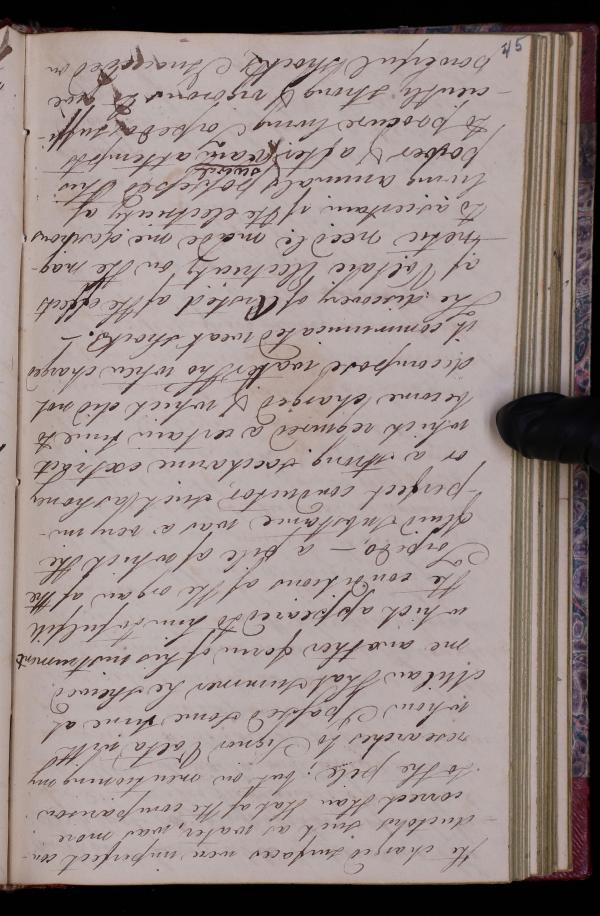 the charged surfaces were imperfect con-
-ductors such as water, was more
correct than that of the comparison
to the pile; but on mentioning my
researches to Signor Volta with
whom I passed some time at
Milan that summer he shewed
me another form of his instrument
which appeared to him to fulfill
the conditions of the organ of the
Torpedo, – a pile of which the
fluid substance was a very im-
-perfect conductor, such as honey
or a strong saccharine extract
which required a certain time to
become charged & which did not
decompose water tho when charged
it communicated weak shocks. –
The discovery of Ørsted of the effects
of Voltaic Electricity on the mag-
-netic needle made me desirous
to ascertain if the electricity of
living animals possessed this
power & after several vain attempts
to procure living Torpedos suffi-
-ciently strong & vigorous to give
powerful shocks, I succeeded in
45